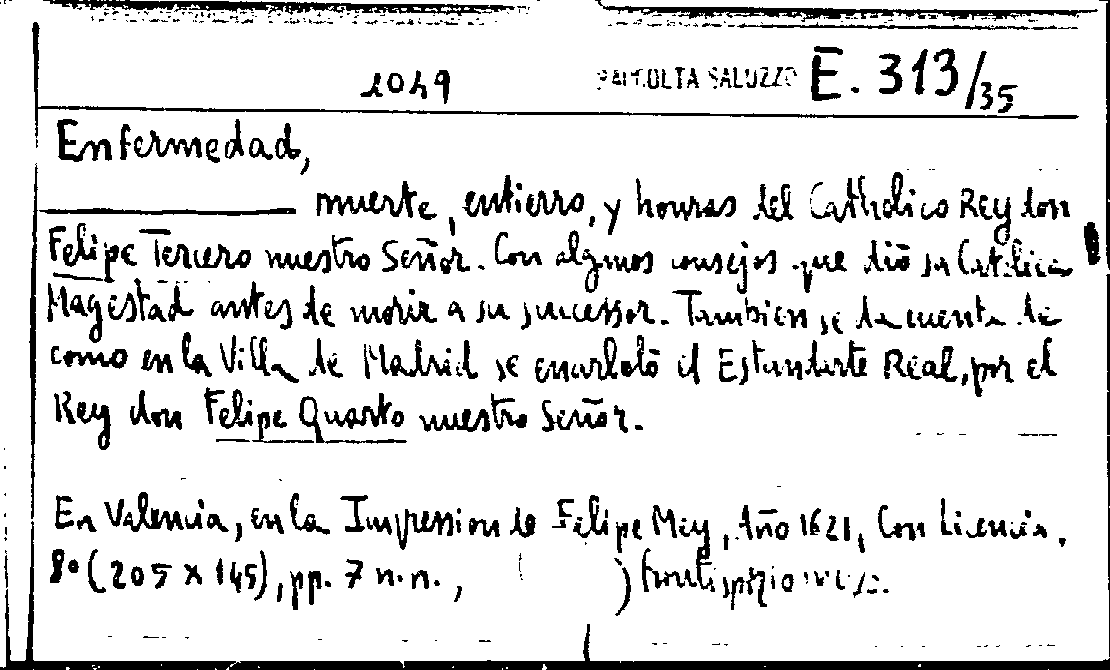 1049 RACCOLTA SALUZZO E. 313/35
Enfermedad,
muerte, entierro, y honras del Catholico Rey don
Felipe Tercero nuestro Señor. Con algunos consejos que diò su Catolica
Magestad antes de morir a su successor. Tambien se da cuenta de
como en la Villa de Madrid se enarbolò el Estandarte Real, por el
Rey don Felipe Quarto nuestro Señor.
En Valencia, en la Impression de Felipe Mey, Año 1621, Con Licencia.
8° (205 x 145), pp. 7 n.n., ( ) frontispizio